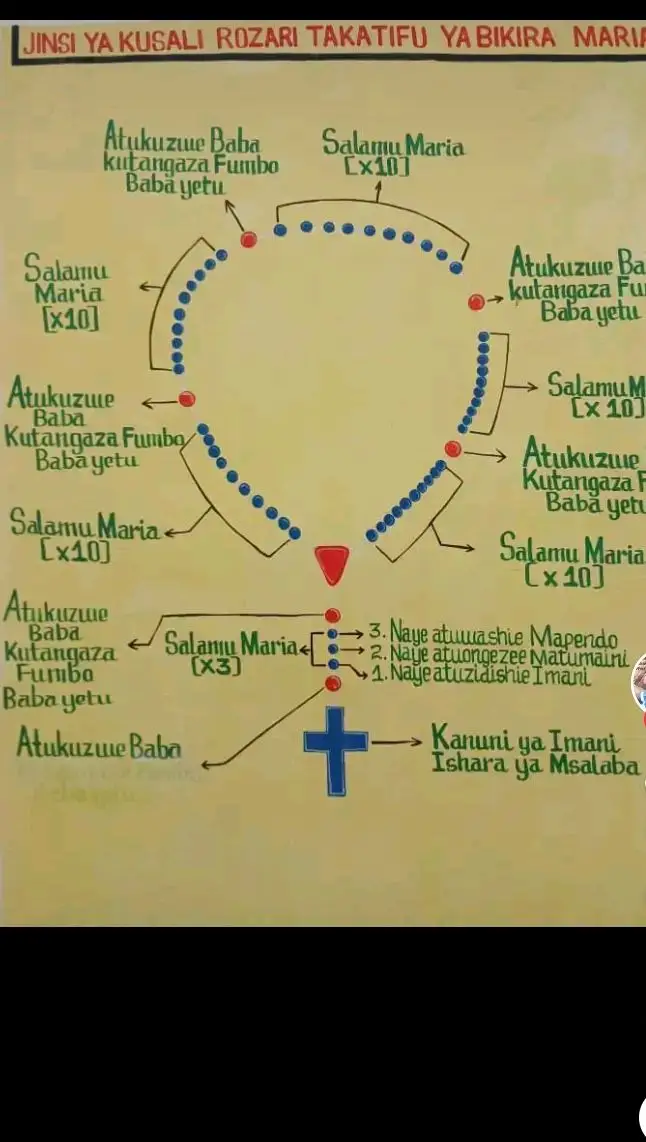 JINSI YA KUSALI ROZARI TAKATIFU YA BIKIRA MARIA
Atukuzwe Baba
kutangaza Fumbo
Baba yetu
Salamu Maria
[x10]
Salamu
Maria
[x10]
Atukuzwe Ba
kutangaza Fu
Baba yetu
Salamu M
[x 10]
Atukuzwe
Baba
Kutangaza Fumbo
Baba yetu
Atukuzwe
Kutangaza F
Baba yetu
Salamu Maria
[x10]
Salamu Maria
[x 10]
Atukuzwe
Baba
Kutangaza
Fumbo
Baba yetu
Salamu Maria
(x3)
3. Naye atuwashie Mapendo
2. Naye atuongezee Matumaini
1. Naye atuzidishie Imani
Atukuzwe Baba
Kanuni ya Imani
Ishara ya Msalaba